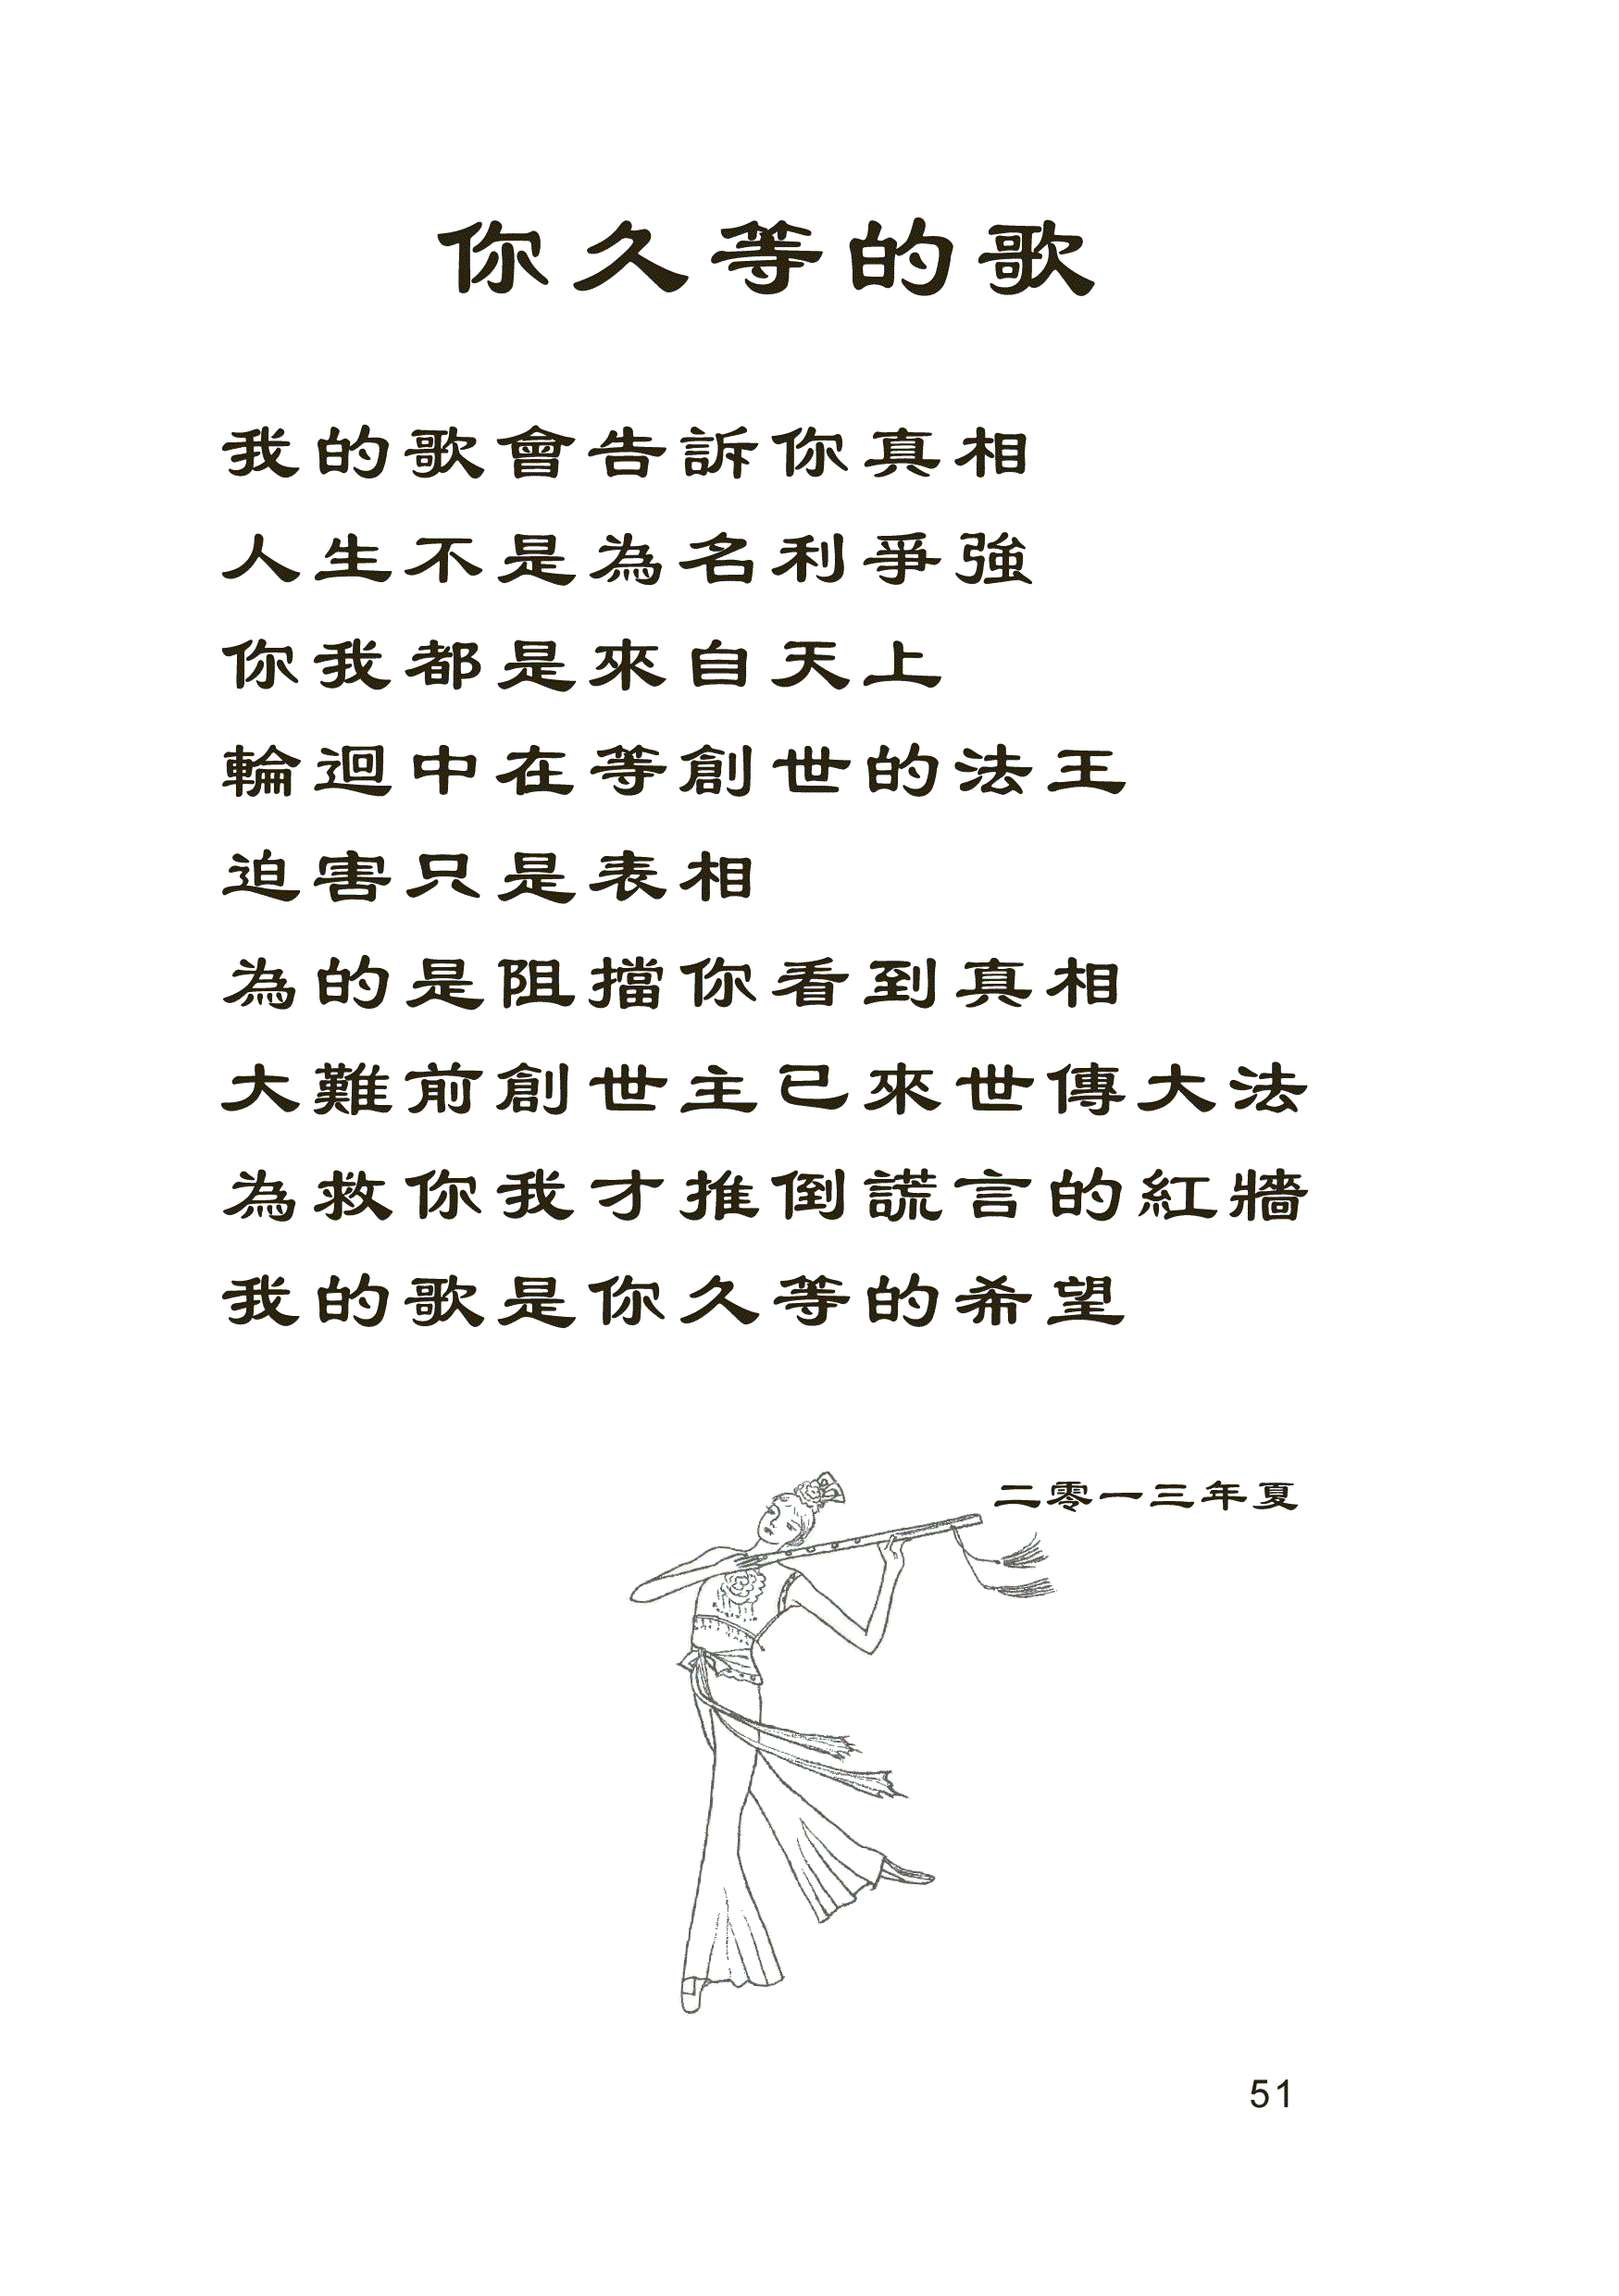 你久等的歌
我的歌會告訴你真相
人生不是為名利爭強
你我都是來自天上
輪迴中在等創世的法王
迫害只是表相
為的是阻擋你看到真相
大難前創世主已來世傳大法
為救你我才推倒謊言的紅牆
我的歌是你久等的希望
二零一三年夏
51